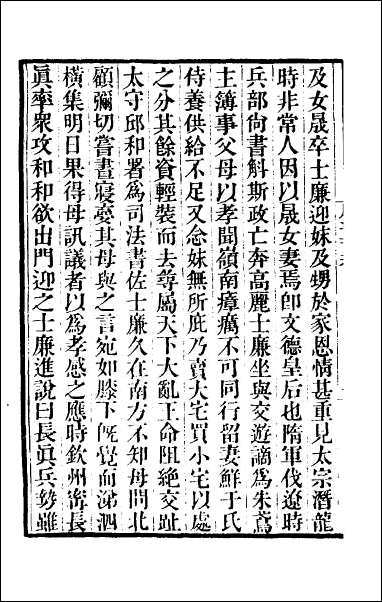 及女晟卒士廉迎妹及甥於家恩情甚重見太宗潛龍
時非常人因以晟女妻焉卽文德皇后也隋軍伐遼時
兵部尙書斛斯政亡奔高麗士廉坐與交遊謫爲朱鳶
主簿事父母以孝聞嶺南瘴癘不可同行留妻鮮于氏
侍養供給不足又念妹無所庇乃賣大宅買小宅以處
之分其餘資輕裝而去尋屬天下大亂王命阻絶交趾
太守邱和署爲司法書佐士廉久在南方不知母問北
顧彌切嘗晝寢夢其母與之言宛如膝下旣覺而涕泗
橫集明日果得母訊議者以爲孝感之應時欽州甯長
眞率衆攻和和欲出門迎之士廉進說曰長眞兵勢雖